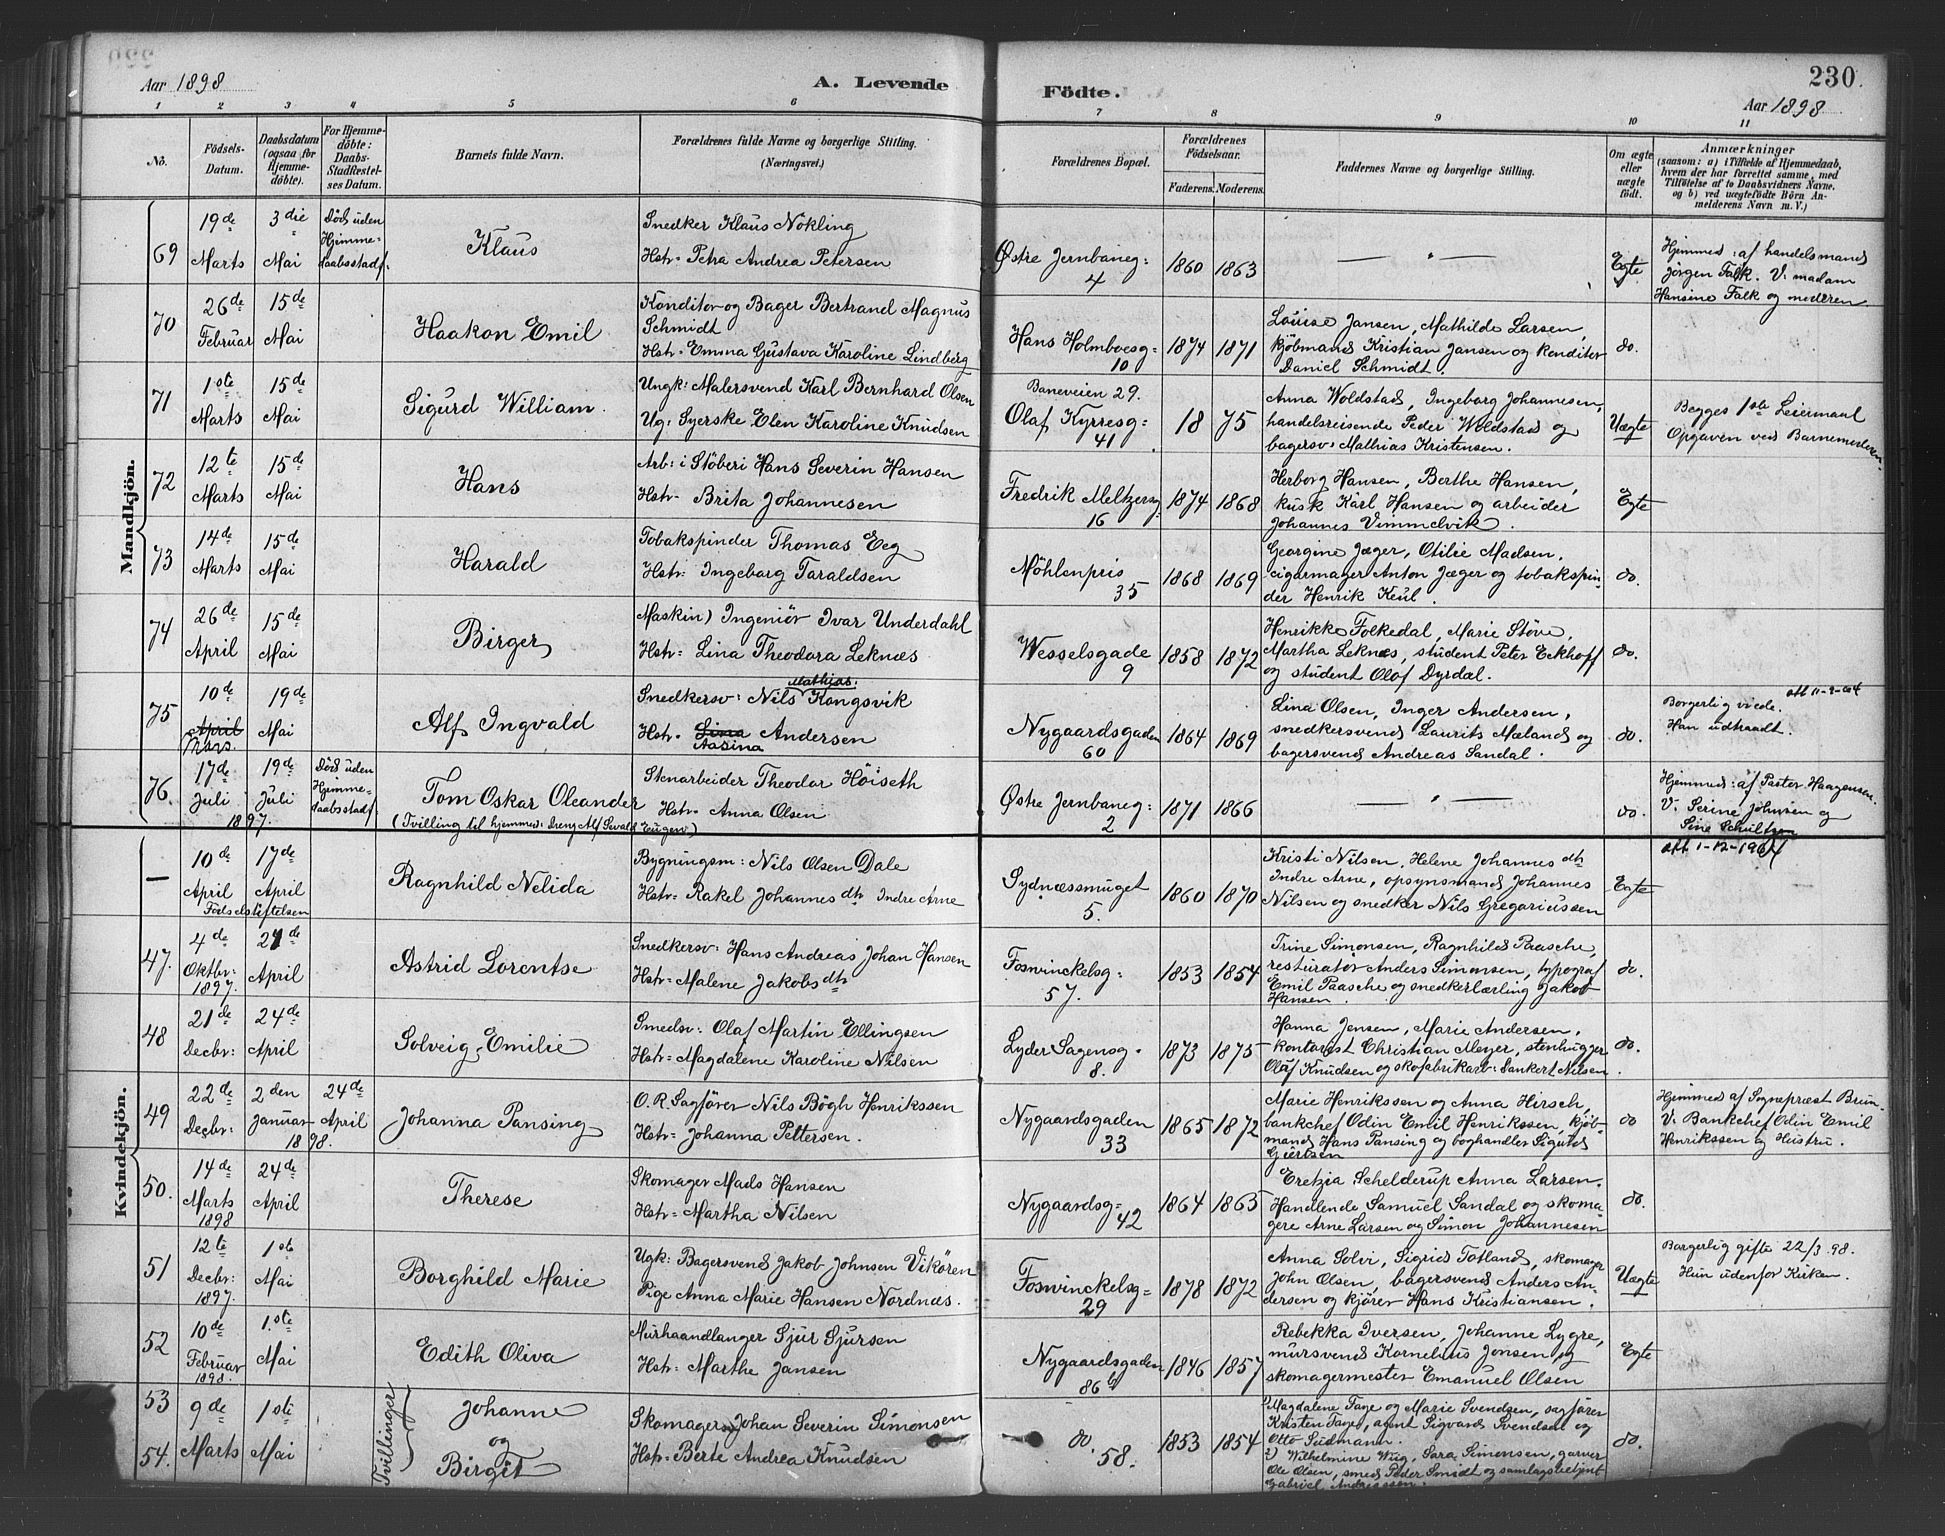 Aar 1898
A. Levende
Födte.
230
Aar 1898
1 2 3 4 5 6 7 8 9 10 11
No.
Födsels-Datum.
Daabsdatum (ogsaa for Hjemmedöbte).
For Hjemmedöbte: Daabs-Stadfestelses Datum.
Barnets fulde Navn.
Forældrenes fulde Navne og borgerlige Stilling.
(Næringsvei.)
Forældrenes Bopæl.
Forældrenes Födselsaar.
Faderens. Moderens.
Faddernes Navne og borgerlige Stilling.
Om ægte eller uægte födt.
Anmærkninger
(saasom: a) i Tilfælde af Hjemmedaab, hvem der har forrettet samme, med Tilföielse af to Daabsvidners Navne, og b) ved uægtefödte Börn Anmelderens Navn m. V.)
Mandkjön.
69
19de Marts
3die Mai
Död uden Hjemmedaabsstadf.
Klaus
Snedker Klaus Nökling
Hstr. Petra Andrea Petersen
Østre Jernbaneg: 4
1860 1863
— " —
Egte
Hjemmed: af handelsmand
Jörgen Falk. V. madam
Hansine Falk og moderen
70
26de Februar
15de Mai
Haakon Emil
Konditor og Bager Bertrand Magnus
Schmidt
Hstr. Emma Gustava Karoline Lindberg
Hans Holmboesg: 10
1874 1871
Louise Jansen, Mathilde Larsen,
kjöbmand Kristian Jansen og konditor
Daniel Schmidt.
do.
71
1ste Marts
15de Mai
Sigurd William.
Ungk: Malersvend Karl Bernhard Olsen
Ug: Syerske Elen Karoline Knudsen
Baneveien 29.
Olaf Kyrresg: 41
18 75
Anna Woldstad, Ingeborg Johannesen,
handelsreisende Peder Woldstad og
bagersv: Mathias Kristensen.
Uægte
Begges 1ste Leiermaal
Opgaven ved Barnemoderen.
72
12te Marts
15de Mai
Hans
Arb: i Stöberi Hans Severin Hansen
Hstr. Brita Johannesen
Fredrik Meltzersg. 16
1874 1868
Herborg Hansen, Berthe Hansen,
kusk Karl Hansen og arbeider
Johannes Vimmelvik.
Egte
73
14de Marts
15de Mai
Harald
Tobakspinder Thomas Eeg
Hstr: Ingeborg Taraldsen
Möhlenpris 35
1868 1869
Georgine Jæger, Otilie Madsen,
cigarmager Anton Jæger og tobakspin-
der Henrik Keul.
do.
74
26de April
15de Mai
Birger
Maskin) Ingeniör Ivar Underdahl
Hstr: Lina Theodora Leknæs
Wesselsgade 9
1858 1872
Henrikke Folkedal, Marie Störe,
Martha Leknæs, student Peter Eckhoff
og student Olaf Dyrdal.
do.
75
10de April Mars.
19de Mai
Alf Ingvald
Snedkersv: Nils Mathias Kongsvik
Hstr. Lina Aasina Andersen
Nygaardsgaden 60
1864 1869
Lina Olsen, Inger Andersen,
snedkersvend Laurits Mæland og
bagersvend Andreas Sandal.
do.
att 11-9-04
Borgerlig viede.
Han udtraadt.
76.
17de Juli
1897.
19de Juli
Död uden Hjemmedaabsstadf.
Tom Oskar Oleander
(Tvilling til hjemmed: dreng Alf Sevald Eugen)
Stenarbeider Theodor Höiseth
Hstr. Anna Olsen
Østre Jernbaneg: 2
1871 1866
— " —
do.
Hjemmed: af Pastor Haagensen.
V. Serine Johnsen og
Sine Schultzen
att 1-12-1904
Kvindekjön.
—
10de April
17de April
Födselstiftelsen
Ragnhild Nelida
Bygningsm: Nils Olsen Dale
Hstr. Rakel Johannesdtr Indre Arne
Sydnæssmuget 5.
1860 1870
Kristi Nilsen, Helene Johannesdtr
Indre Arne, opsynsmand Johannes
Nilsen og snedker Nils Gregariussen
Egte
47.
4de Oktbr: 1897.
24de April
Astrid Lorentse
Snedkersv: Hans Andreas Johan Hansen
Hstr. Malene Jakobsdtr
Foswinckelsg: 57.
1853 1854
Trine Simonsen, Ragnhild Paasche,
resturatör Anders Simonsen, typograf
Emil Paasche og snedkerlærling Jakob
Hansen.
do.
48
21de Decbr:
24de April
Solveig Emilie
Smedsv: Olaf Martin Ellingsen
Hstr. Magdalene Karoline Nilsen
Lyder Sagensg. 8.
1873 1875
Hanna Jensen, Marie Andersen,
kontorist Christian Meyer, stenhugger
Olaf Knudsen og skofabrikarb: Dankert Nilsen.
do.
49
22de Decbr:
2den Januar 1898.
24de April
Johanna Pansing
O.R.Sagförer Nils Bögh Henrikssen
Hstr. Johanna Pettersen.
Nygaardsgaden 33
1865 1872
Marie Henrikssen og Anna Hirsch,
bankchef Odin Emil Henrikssen, kjöb-
mand Hans Pansing og boghandler Sigurd
Giertsen
do
Hjemmed af Sogneprest Brun.
V. Bankchef Odin Emil
Henrikssen og Hustru.
50.
14de Marts 1898
24de April
Therese
Skomager Mads Hansen
Hstr. Martha Nilsen
Nygaardsg: 42
1864 1863
Eretzia Schelderup Anna Larsen.
Handlende Samuel Sandal og skoma-
gere Arne Larsen og Simon Johannesen
do.
51
12te Decbr: 1897.
1ste Mai
Borghild Marie
Ugk: Bagersvend Jakob Johnsen Vikören
Pige Anna Marie Hansen Nordnæs.
Foswinckelsg: 29
1878 1872
Anna Solvi, Sigrid Totland, skomager
John Olsen, bagersvend Anders An-
dersen og kjörer Hans Kristiansen.
Uægte
Borgerlig gifte 22/3 98.
Hun udenfor Kirken.
52
10de Februar 1898.
1ste Mai
Edith Oliva
Murhaandlanger Sjur Sjursen
Hstr. Marthe Jansen
Nygaardsgaden 86b
1846 1857
Rebekka Iversen, Johanne Lygre,
mursvend Kornelius Jonsen og
skomagermester Emanuel Olsen
Egte
53
54.
9de Marts
1ste Mai
Tvillinger
Johanne
og
Birgit
Skomager Johan Severin Simonsen
Hstr. Berte Andrea Knudsen
do. 58.
1853 1854
1) Magdalene Faye og Marie Svendsen, sagförer
Kristen Faye, agent Sigvard Svendsen og
Otto Sudmann.
2) Wilhelmine Wiig, Sara Simonsen, garver
Ole Olsen, smed Peder Smidt og samlagsbetjent
Gabriel Andreassen.
do.